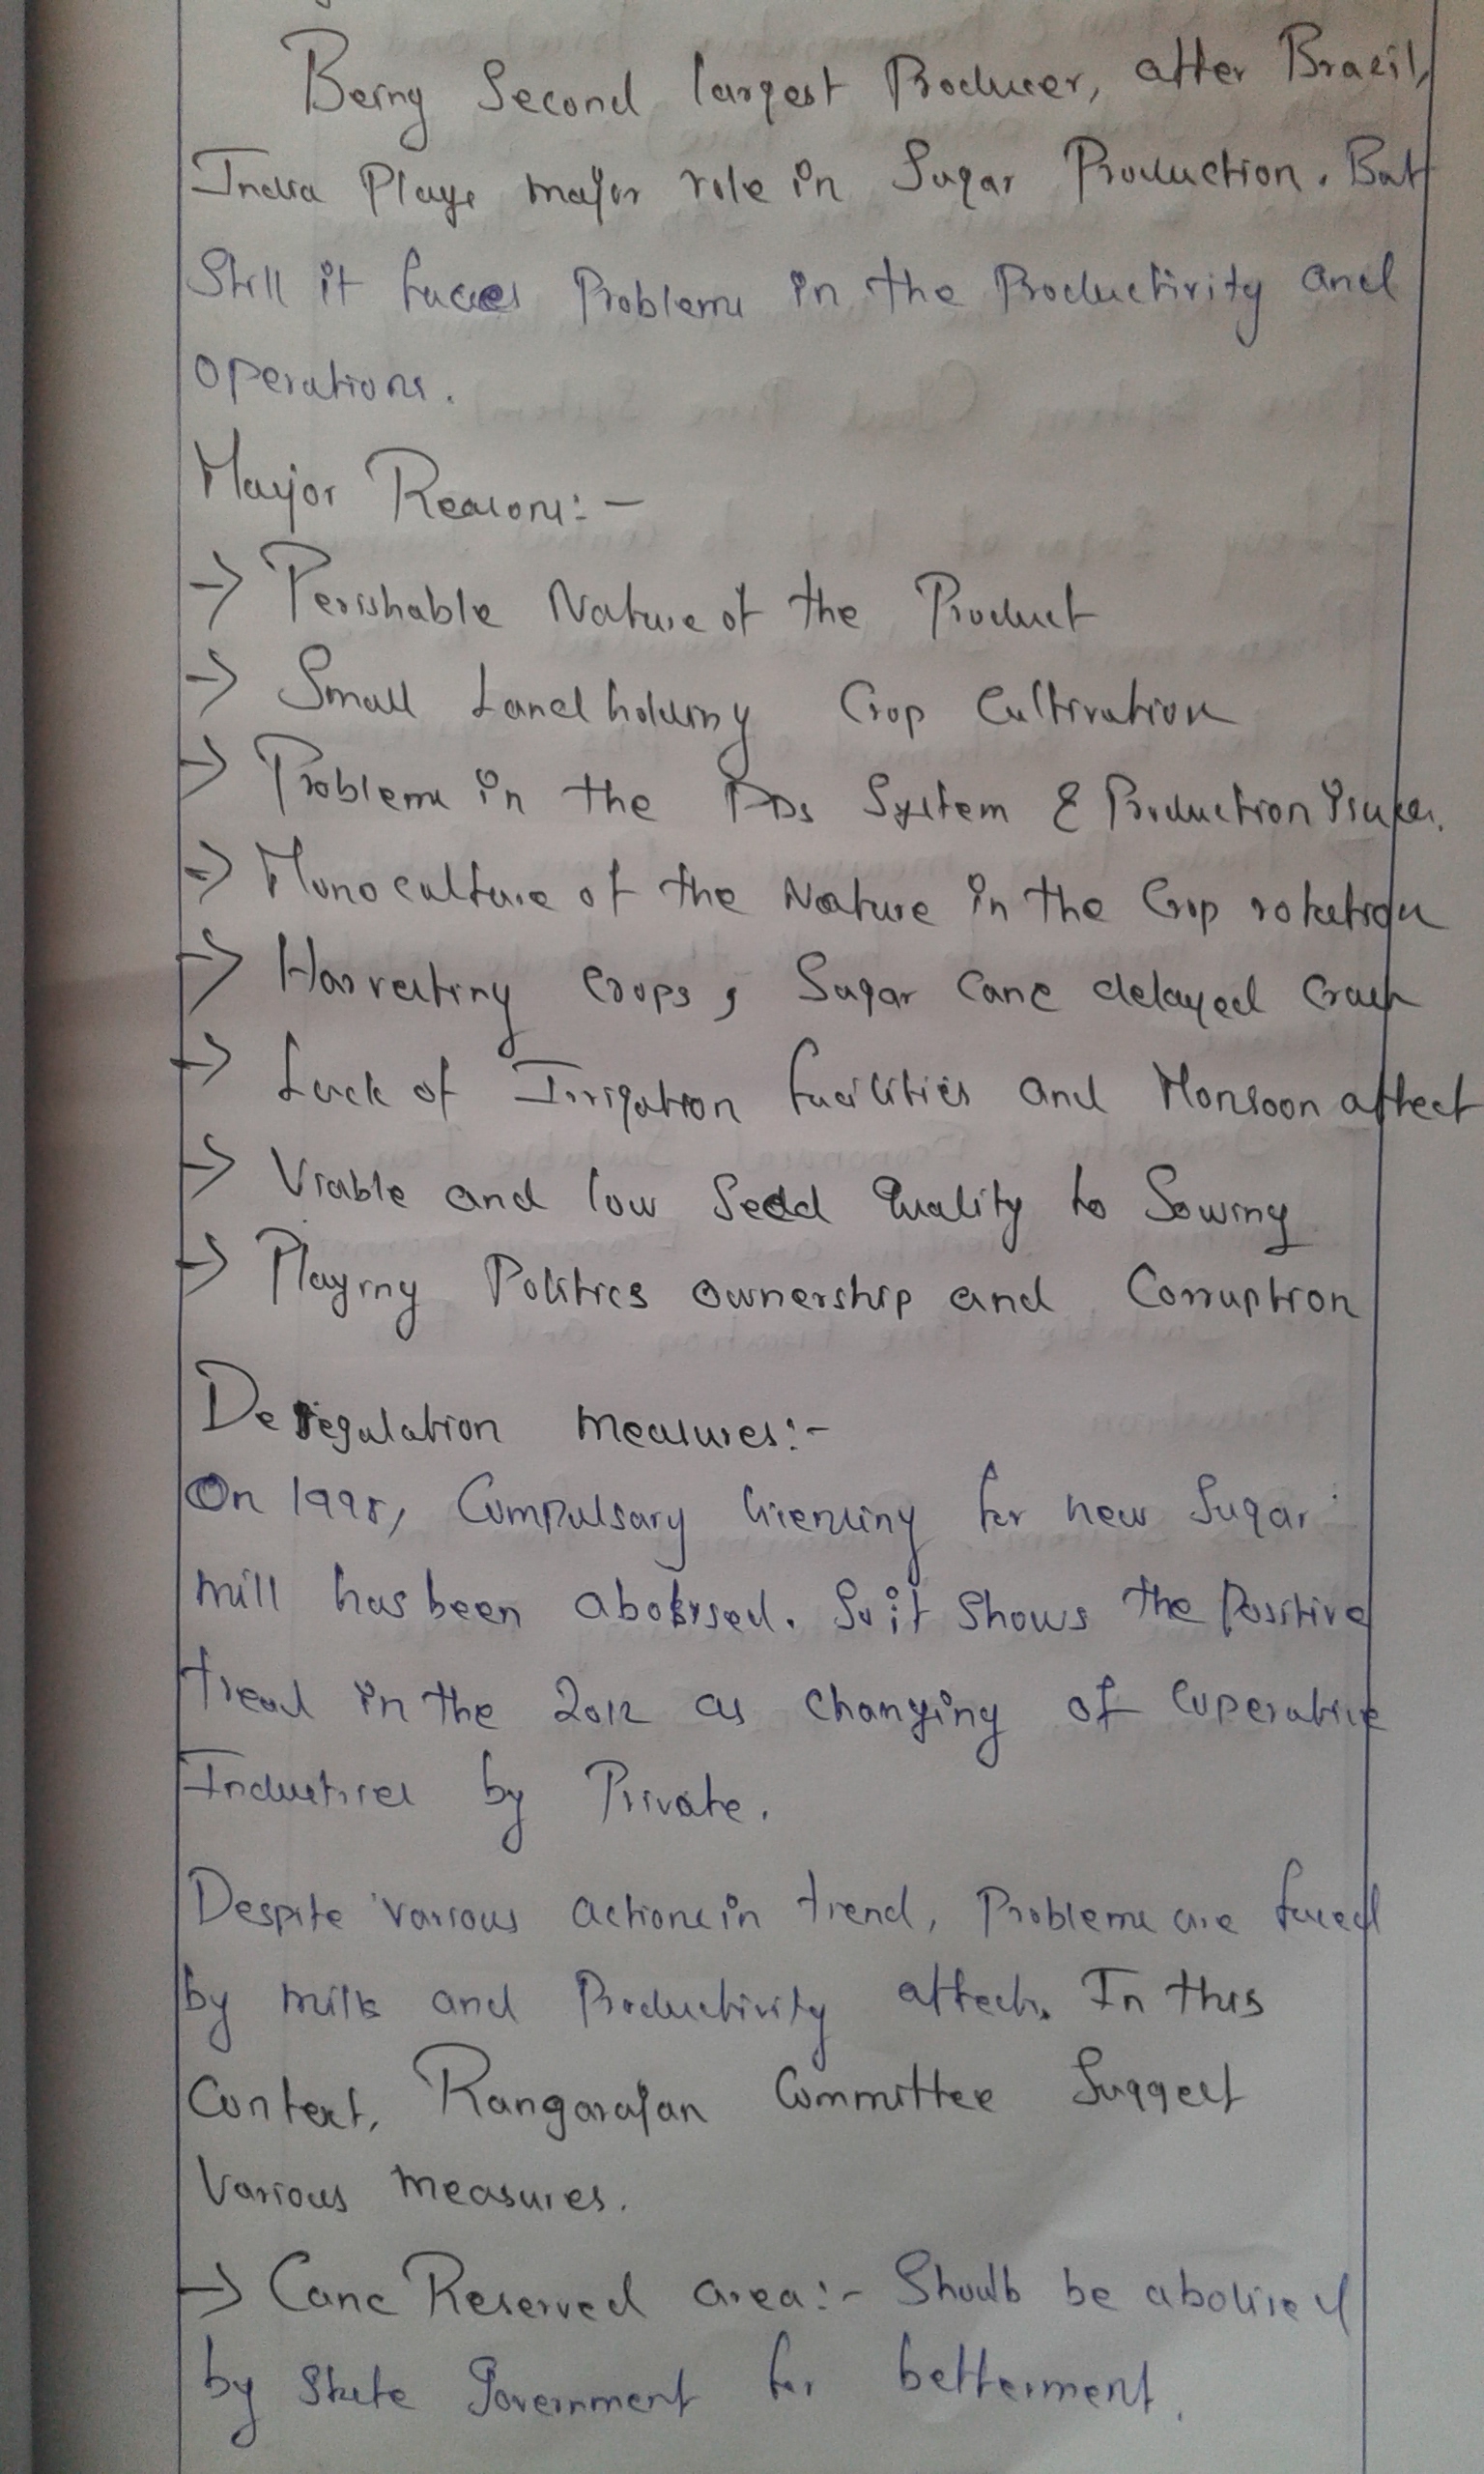 Being Second largest Producer, after Brazil,
India Plays major role in Sugar Production. But
Still it faces Problems in the Productivity and
Operations.
Major Reasons:-
-> Perishable Nature of the Product
-> Small Land holding Crop Cultivation
-> Problems in the PDs System & Production issues.
-> Monoculture of the Nature in the Crop rotation
-> Harvesting Crops, Sugar cane delayed Crush
-> Lack of Irrigation facilities and Monsoon affect
-> Viable and low Seed Quality to Sowing
-> Playing Politics ownership and Corruption
Deregulation measures:-
On 1998, Compulsary licensing for new Sugar
mill has been abolised. So it Shows the Positive
trend in the 2012 as changing of Coperative
Industries by Private.
Despite various actions in trend, Problems are faced
by mills and Productivity affects. In this
Context, Rangarajan Committee Suggest
Various measures.
-> Cane Reserved area:- Should be abolised
by State Government for betterment.